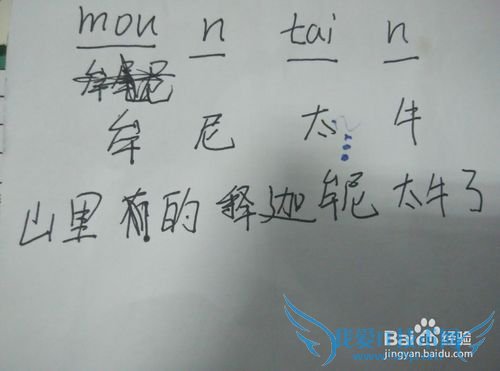 mou n tai n
牟 尼 太 牛
山里有的释迦牟尼太牛了
Baidu经验
jingyan.baidu.com